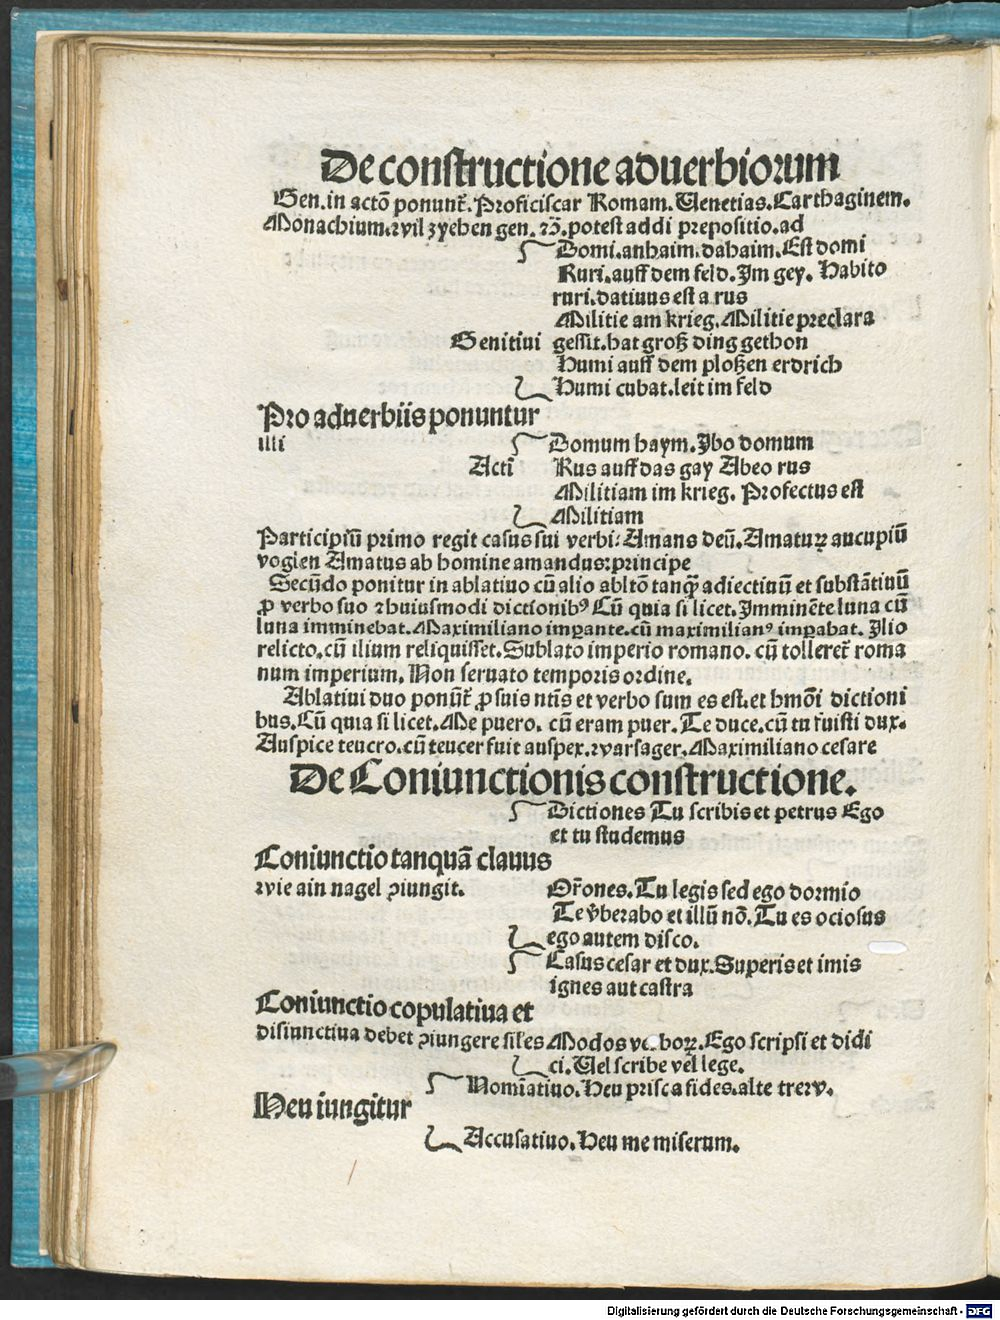 De constructione aduerbiorum
Gen. in actō ponunt᷑. Proficiscar Romam. Uenetias. Carthaginem.
Monachium. ⁊ vil zyeben gen. ⁊c̄. potest addi prepositio. ad
Domi. anhaim. dahaim. Est domi
Ruri. auff dem feld. Im gey. Habito
ruri. datiuus est a rus
Militie am krieg. Militie preclara
Genitiui gessit. hat groß ding gethon
Humi auff dem ploßen erdrich
Humi cubat. leit im feld
Pro aduerbiis ponuntur
illi Domum haym. Ibo domum
Acti Rus auff das gay Abeo rus
Militiam im krieg. Profectus est
Militiam
Participiū primo regit casus sui verbi: Amans deū. Amaturꝝ aucupiū
voglen Amatus ab homine amandus: principe
Secūdo ponitur in ablatiuo cū alio abltō tanqͣ̄ adiectiuū et substātiuū
ꝓ verbo suo ⁊ huiusmodi dictionibꝰ Cū quia si licet. Imminēte luna cū
luna imminebat. Maximiliano imꝑante. cū maximilianꝰ imꝑabat. Ilio
relicto. cū ilium reliquisset. Sublato imperio romano. cū tolleret᷑ roma
num imperium. Non seruato temporis ordine.
Ablatiui duo ponūt᷑ ꝓ suis ntīs et verbo sum es est. et hmōi dictioni
bus. Cū quia si licet. Me puero. cū eram puer. Te duce. cū tu fuisti dux.
Auspice teucro. cū teucer fuit auspex. ⁊ varsager. Maximiliano cesare
De Coniunctionis constructione.
Dictiones Tu scribis et petrus Ego
et tu studemus
Coniunctio tanquā clauus
⁊ vie ain nagel ꝯiungit. Or̄ones. Tu legis sed ego dormio
Te v̄berabo et illū nō. Tu es ociosus
ego autem disco.
Casus cesar et dux. Superis et imis
ignes aut castra
Coniunctio copulatiua et
disiunctiua debet ꝯiungere siles Modos verboꝝ. Ego scripsi et didi
ci. Uel scribe vel lege.
Nomīatiuo. Heu prisca fides. alte trerv.
Heu iungitur
Accusatiuo. Heu me miserum.
Digitalisierung gefördert durch die Deutsche Forschungsgemeinschaft - DFG